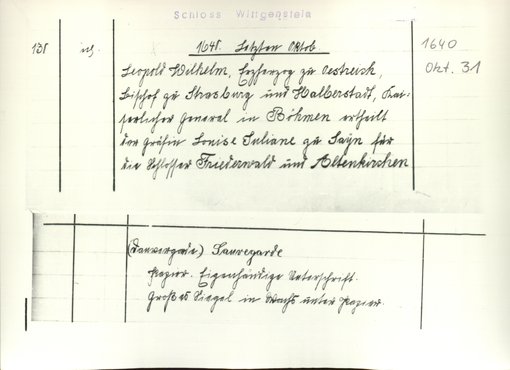 Schloss Wittgenstein
1640. Letzten Oktob
1640
Okt. 31
Leopold Wilhelm, Erzherzog zu Oestreich,
Bischof zu Strasburg und Halberstadt, Kai-
serlicher General in Böhmen erteilt
der Gräfin Louise Juliane zu Sayn für
die Schlösser Friederwald und Altenkirchen
Sauvegarde
Papier. Eigenhändige Unterschrift.
Großes Siegel in Wachs unter Papier.